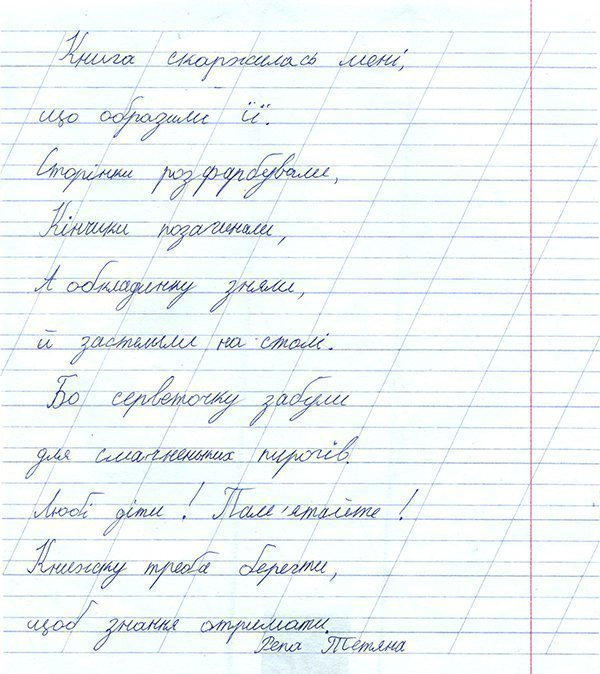 Книга скаржилась мені,
що образили її.
Сторінки розфарбували,
Кінчики позагинали,
А обкладинку зняли,
й застелили на столі.
Бо серветочку забули
для смачненьких пирогів.
Любі діти! Пам'ятайте!
Книжку треба берегти,
щоб знання отримати.
Репа Тетяна